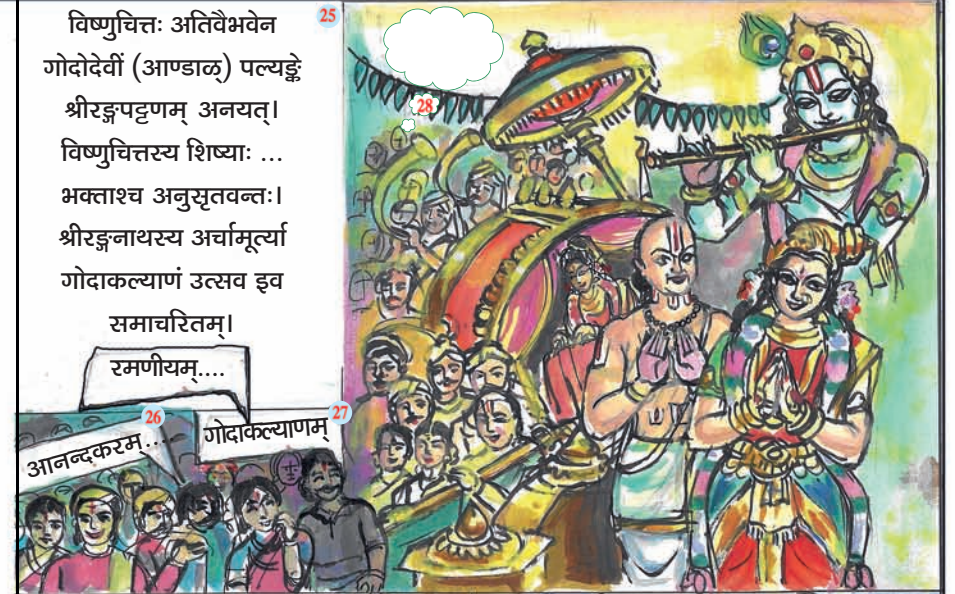 विष्णुचित्तः अतिवैभवेन
25
गोदोदेवीं (आण्डाळ्) पल्यङ्के
श्रीरङ्गपट्टणम् अनयत्।
विष्णुचित्तस्य शिष्याः ...
भक्ताश्च अनुसृतवन्तः।
श्रीरङ्गनाथस्य अर्चामूर्त्या
गोदाकल्याणं उत्सव इव
समाचरितम्।
रमणीयम्....
26
आनन्दकरम्....
27
गोदाकल्याणम्
28